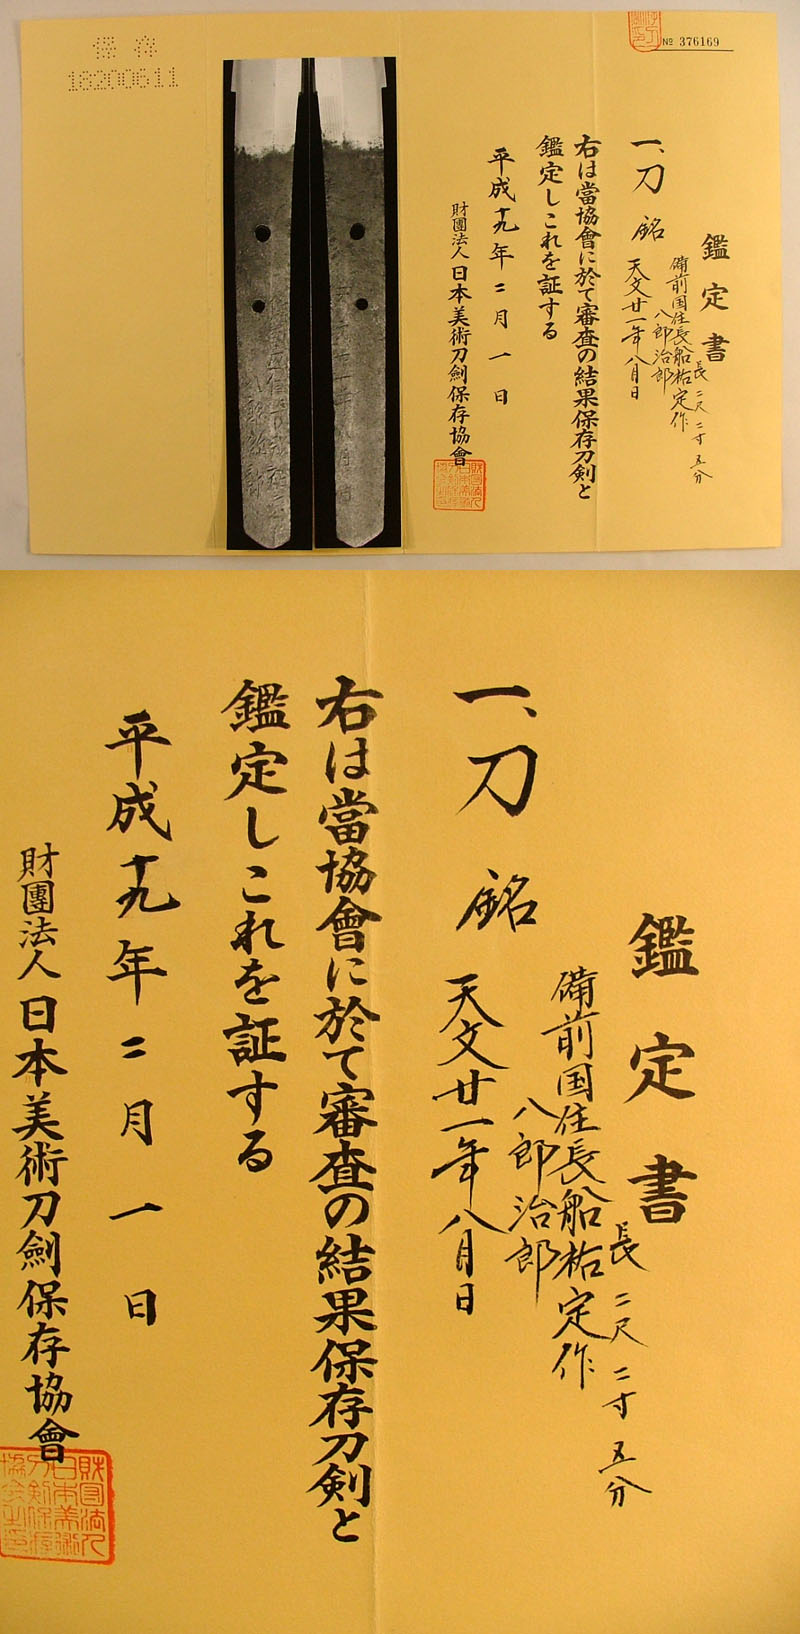 保存
18200611
No 376169
鑑定書
長二尺二寸五分
一、刀 銘
備前国住長船祐定作
八郎治郎
天文廿一年八月日
右は當協會に於て審査の結果保存刀剣と
鑑定しこれを証する
平成十九年二月一日
財團法人日本美術刀劍保存協會
鑑定書
長二尺二寸五分
一、刀 銘
備前国住長船祐定作
八郎治郎
天文廿一年八月日
右は當協會に於て審査の結果保存刀剣と
鑑定しこれを証する
平成十九年二月一日
財團法人日本美術刀劍保存協會